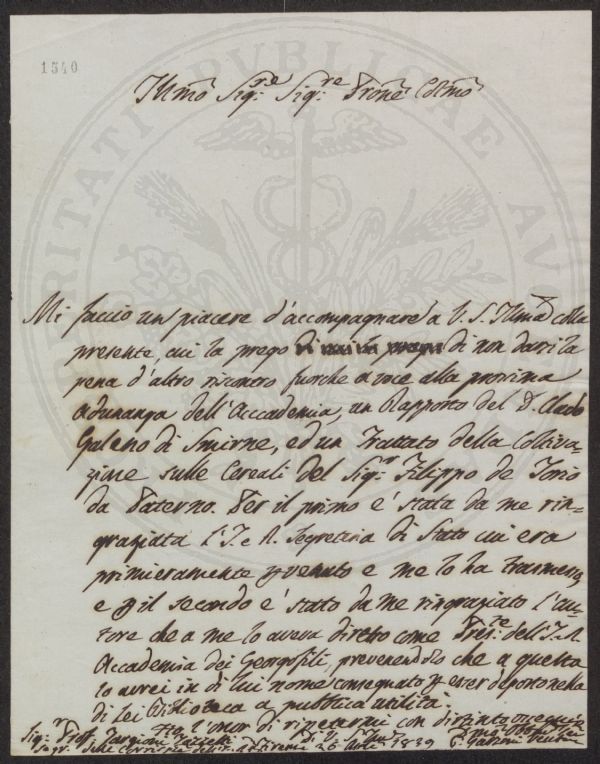 1540
Illmo Sigre Sigre Prone Colmo
Mi faccio un piacere d'accompagnare a V. S. Illma colla
presente, cui la prego di non darsi la
pena d'altro riscontro fuorchè a voce alla prossima
adunanza dell'Accademia, un Rapporto del Dr.
Galeno di Smirne, ed un Trattato della Coltiva-
zione sulle Cereali del Sigr Filippo de Jorio
da Paterno. Per il primo è stata da me rin-
graziata l'I. e R. Segreteria di Stato cui era
primieramente pervenuto e me lo ha trasmesso,
e p il secondo è stato da me ringraziato l'au-
tore che a me lo aveva diretto come Preste dell'I. R.
Accademia dei Georgofili, prevenendolo che a questa
lo avrei in di lui nome consegnato p esser deposto nella
di Lei biblioteca a pubblica utilità.
Ho l'onor di ripetermi con distinto ossequio
Sigr Proff. Targioni Tozzetti Di V. S. Illma
Segr. delle Corrisp. 26 1839